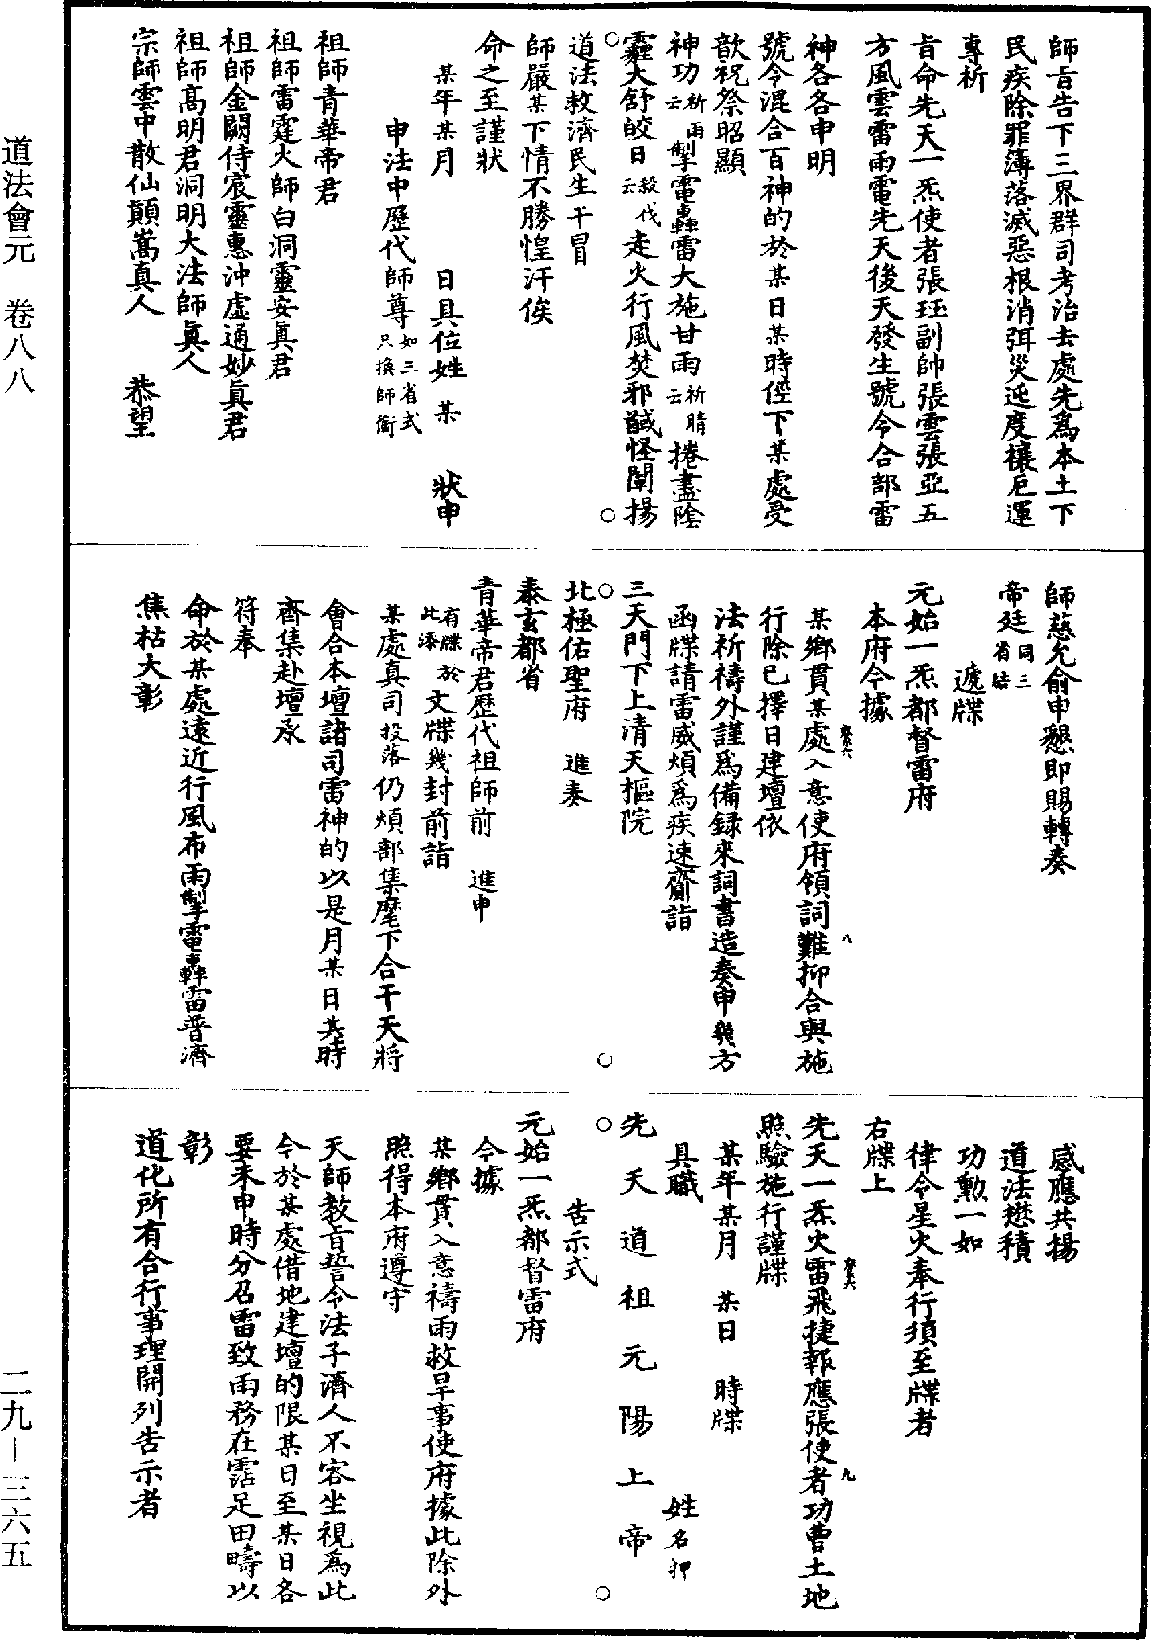 師旨告下三界群司考治去處先為本土下
民疾除罪簿落滅惡根消弭災迍度禳厄運
專祈
旨命先天一炁使者張珏副帥張雲張亞五
方風雲雷雨電先天後天發生號令合部雷
神各各申明
號令混合百神的於某日某時徑下某處受
歆祝祭昭顯
神功祈雨云掣電轟雷大施甘雨祈晴云捲盡陰
霾大舒皎日救伐云走火行風焚邪馘怪闡揚
道法救濟民生干冒
師嚴某下情不勝惶汗俟
命之至謹狀
某年某月 日具位姓 某 狀申
申法中歷代師尊如三省式只換師銜
祖師青華帝君
祖師雷霆火師白洞靈安真君
祖師金闕侍宸靈惠沖虛通妙真君
祖師高明君洞明大法師真人
宗師雲中散仙顛嵩真人 恭望
師慈允俞申懇即賜轉奏
帝廷同三省結
遞牒
元始一炁都督雷府
本府今據
某鄉貫某處入意使府領詞難抑合與施
行除已擇日建壇依
法祈禱外謹為備錄來詞書造奏申幾方
函牒請雷威煩為疾速齎詣
三天門下上清天樞院
北極佑聖府 進奏
泰玄都省
青華帝君歷代祖師前 進申
有牒於此添文牒幾封前詣
某處真司投落仍煩部集麾下合干天將
會合本壇諸司雷神的以是月某日某時
齊集赴壇承
符奉
命於某處遠近行風布雨掣電轟雷普濟
焦枯大彰
感應共揚
道法懋積
功勳一如
律令星火奉行須至牒者
右牒上
先天一炁火雷飛捷報應張使者功曹土地
照驗施行謹牒
某年某月 某日 時牒
具職 姓名押
先天道祖元陽上帝
告示式
元始一炁都督雷府
今據
某鄉貫入意禱雨救旱事使府據此除外
照得本府遵守
天師教旨誓令法子濟人不容坐視為此
今於某處借地建壇的限某日至某日各
要未申時分召雷致雨務在霑足田疇以
彰
道化所有合行事理開列告示者
道法會元 卷八八
二九—三六五